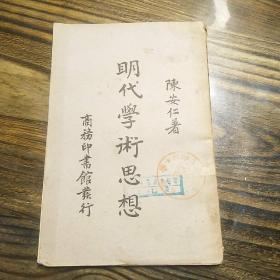 陳安仁著
明代學術思想
商務印書館發行